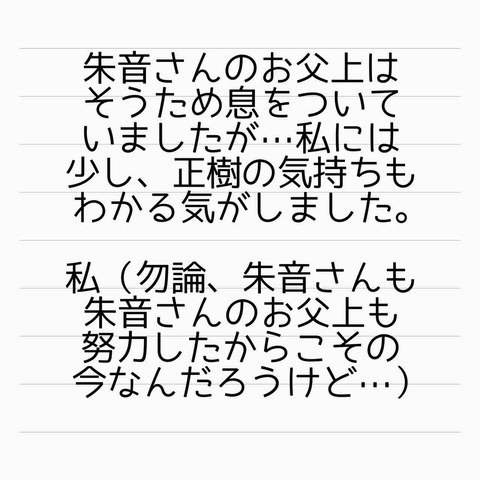 朱音さんのお父上は
そうため息をついて
いましたが…私には
少し、正樹の気持ちも
わかる気がしました。
私（勿論、朱音さんも
朱音さんのお父上も
努力したからこその
今なんだろうけど…）